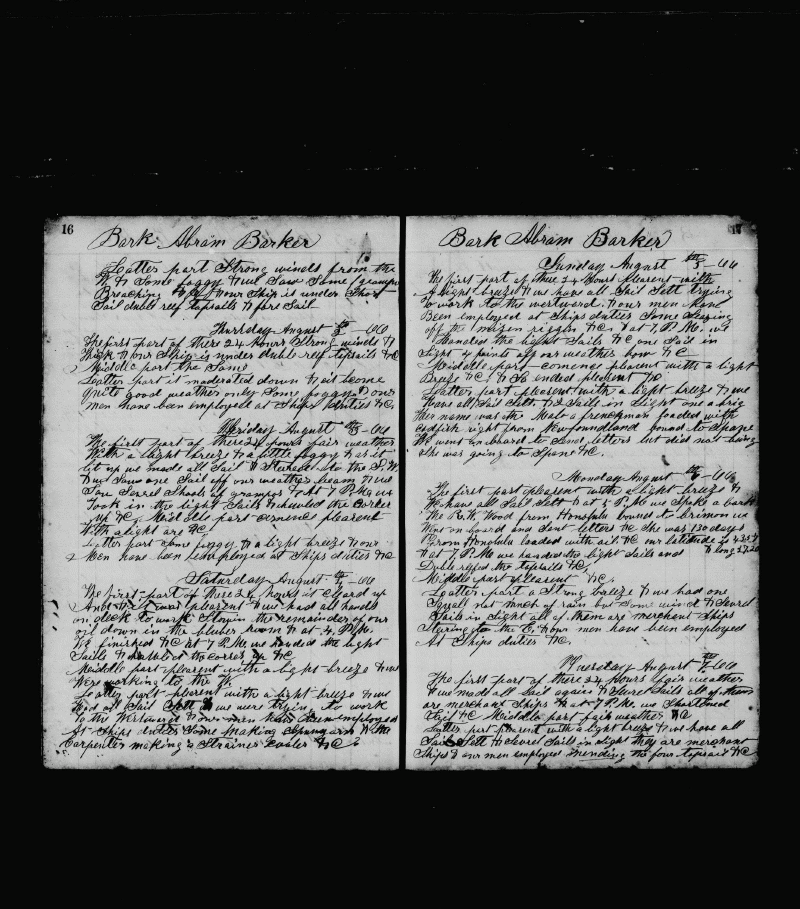 16
Bark Abram Barker
Latter part Strong winds from the
W & Some foggy & we Saw Some grampus
Breaching & Our Ship is under Short
Sail duble reef topsails & fore Sail
Thursday August 2 -66
The first part of these 24 hours Strong winds &
thick & our Ship is under duble reef topsails &C
Middle part the Same
Latter part it moderated down & it become
quite good weather only Some foggy & our
men have been employed at Ships duties &C
Friday August 3 -66
The first part of these 24 hours fair weather
With a light breeze & a little foggy & as it
lit up we made all Sail & Steered to the S.W.
& we Saw one Sail off our weather beam & we
Saw Sevrel Shools of grampus & at 7 P.M. we
Took in the light Sails & hauled the
up &C Middle part comence pleasent
With a light are &C
Latter part Some foggy & a light breeze & our
Men have been employed at Ships duties &C
Saturday August 4 -66
The first part of these 24 hours it cleard up
And it was pleasent & we had all hands
on deck to work Stowin the remainder of our
oil down in the bluber room & at 4 P.M.
We finished &C at 7 P.M. we handed the light
Sails & hauled the up &C
Middle part pleasent with a light breeze & we
Were working to the W.
Latter part plesent with a light breeze & we
Had all Sail Sett & we were trying to work
to the Westward & our men have been employed
At Ships duties Some making Spunyarn & the
Carpenter making a Strainer &C
17
Bark Abram Barker
Sunday August 5 -66
The first part of these 24 hours plesent with
A light breeze & we have all Sail Sett trying
to work to the westward & our men have
Been employed at Ships duties Some
off the mizen &C & at 7 P.M. we
Handed the light Sails &C one Sail in
Sight 4 points off our weather bow &C
Middle part comence plesent with a light
Breeze &C & So ended plesent &C
Latter part plesent with a light breeze & we
Have all Sail Sett & 2 Sails in Sight one a brig
Her name was the a frenchman loaded with
codfish right from Newfoundland bound to Spane
We went on board to Send letters but did not
She was going to Spane &C.
Monday August 6 -66
The first part plesent with a light breeze &
We have all Sail Sett & at 5 P.M. we Spoke a bark
The R.W. Wood from Honolulu bound to Brimon we
Went on board and Sent letters &C She was 130 days
From Honolulu loaded with oil &C our latitude is
& at 7 P.M we handed the light Sails and & long
Duble reffed the topsails &C
Middle part plesent &C
Latter part a Strong breeze & we had one
Squall not much of rain but Some wind & Sevrel
Sails in Sight all of them are merchant Ships
Stering to the E. & our men have been employed
At Ships duties &C.
Tuesday August 7 -66
The first part of these 24 hours fair weather
& we made all Sail again & Sevrel Sails all of them
are merchant Ships & at 7 P.M. we Shortened
Sail &C Middle part fair weather &C
Latter part plesent with a light breeze & we have all
Sail Sett & Sevrel Sails in Sight they are merchant
Ships & our men employed mending the four topsail &C